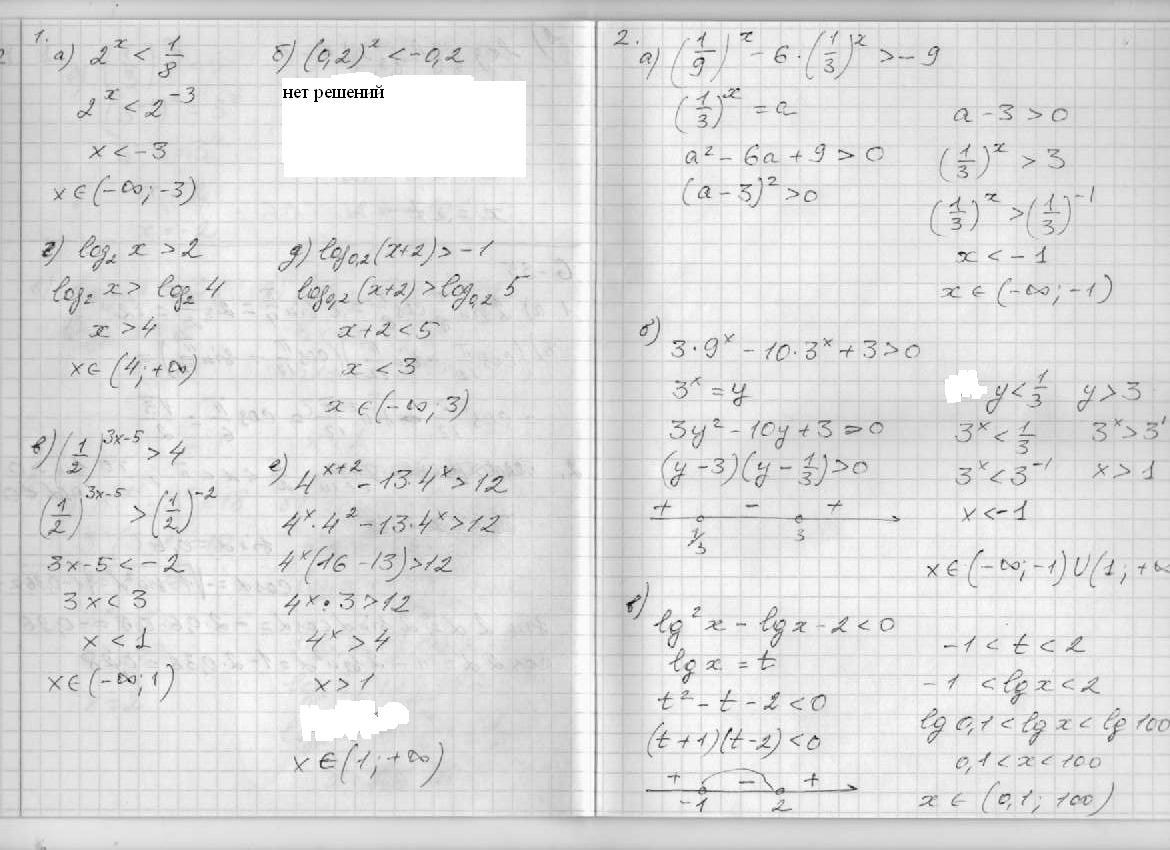 1.
а) 2^x < 1/8
2^x < 2^-3
x < -3
x ∈ (-∞; -3)
б) (0,2)^x < -0,2
нет решений
г) log₂ x > 2
log₂ x > log₂ 4
x > 4
x ∈ (4; +∞)
д) log₀,₂ (x+2) > -1
log₀,₂ (x+2) > log₀,₂ 5
x+2 < 5
x < 3
x ∈ (-∞; 3)
в) (1/2)^3x-5 > 4
(1/2)^3x-5 > (1/2)^-2
3x-5 < -2
3x < 3
x < 1
x ∈ (-∞; 1)
е) 4^x+2 - 13·4^x > 12
4^x·4^2 - 13·4^x > 12
4^x(16-13) > 12
4^x·3 > 12
4^x > 4
x > 1
x ∈ (1; +∞)
2.
а) (1/9)^x - 6·(1/3)^x > -9
(1/3)^x = a
a² - 6a + 9 > 0
(a-3)² > 0
a - 3 > 0
(1/3)^x > 3
(1/3)^x > (1/3)^-1
x < -1
x ∈ (-∞; -1)
б)
3·9^x - 10·3^x + 3 > 0
3^x = y
3y² - 10y + 3 > 0
(y-3)(y-1/3) > 0
+ - +
1/3 3
y < 1/3 y > 3
3^x < 1/3 3^x > 3^1
3^x < 3^-1 x > 1
x < -1
x ∈ (-∞; -1) ∪ (1; +∞
в)
lg² x - lg x - 2 < 0
lg x = t
t² - t - 2 < 0
(t+1)(t-2) < 0
+ - +
-1 2
-1 < t < 2
-1 < lg x < 2
lg 0,1 < lg x < lg 100
0,1 < x < 100
x ∈ (0,1; 100)